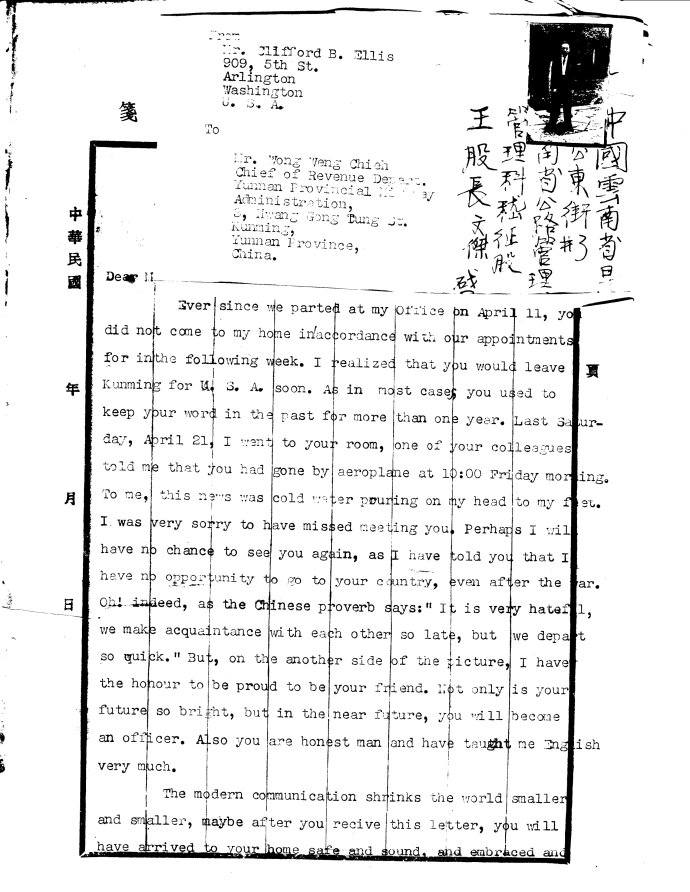 From
Mr. Clifford B. Ellis
909, 5th St.
Arlington
Washington
U. S. A.
To
Mr. Wong Weng Chieh
Chief of Revenue Depart.
Yunnan Provincial
Administration,
3, Hwang Gong Dung St.
Kunming,
Yunnan Province,
China.
中國雲南省昆
公東街#3
南省公路管理
管理科稽征股
王股長文傑
箋
中華民國
年
月
日
頁
Dear M
Ever since we parted at my Office on April 11, you
did not come to my home in/accordance with our appointments
for in the following week. I realized that you would leave
Kunming for U. S. A. soon. As in most cases you used to
keep your word in the past for more than one year. Last Satur-
day, April 21, I went to your room, one of your colleagues
told me that you had gone by aeroplane at 10:00 Friday morning.
To me, this news was cold water pouring on my head to my feet.
I was very sorry to have missed meeting you. Perhaps I will
have no chance to see you again, as I have told you that I
have no opportunity to go to your country, even after the war.
Oh! indeed, as the Chinese proverb says:" It is very hateful,
we make acquaintance with each other so late, but we depart
so quick." But, on the another side of the picture, I have
the honour to be proud to be your friend. Not only is your
future so bright, but in the near future, you will become
an officer. Also you are honest man and have taught me English
very much.
The modern communication shrinks the world smaller
and smaller, maybe after you recive this letter, you will
have arrived to your home safe and sound, and embraced and